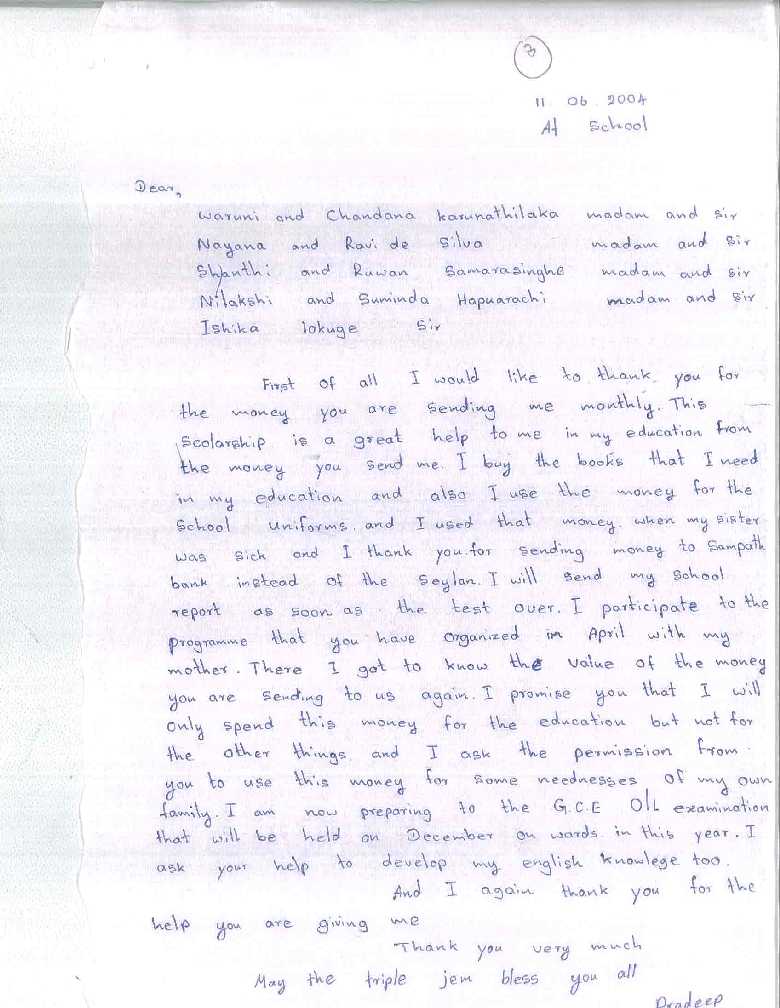 3
11 06 2004
At School
Dear,
Waruni and Chandana karunathilaka madam and sir
Nayana and Ravi de Silva madam and Sir
Shanthi and Ruwan Samarasinghe madam and sir
Nilakshi and Suminda Hapuarachi madam and sir
Ishika lokuge Sir
First of all I would like to thank you for
the money you are sending me monthly. This
Scolarship is a great help to me in my education from
the money you send me. I buy the books that I need
in my education and also I use the money for the
School uniforms. and I used that money. when my sister
was sick and I thank you for sending money to Sampath
bank instead of the Seylan. I will send my School
report as soon as the test over. I participate to the
programme that you have organized in April with my
mother. There I got to know the value of the money
you are sending to us again. I promise you that I will
only spend this money for the education but not for
the other things. and I ask the permission from
you to use this money for some neednesses of my own
family. I am now preparing to the G.C.E O/L examination
that will be held on December on wards. in this year. I
ask your help to develop my english knowlege too.
And I again thank you for the
help you are giving me
Thank you very much
May the triple jem bless you all
Pradeep